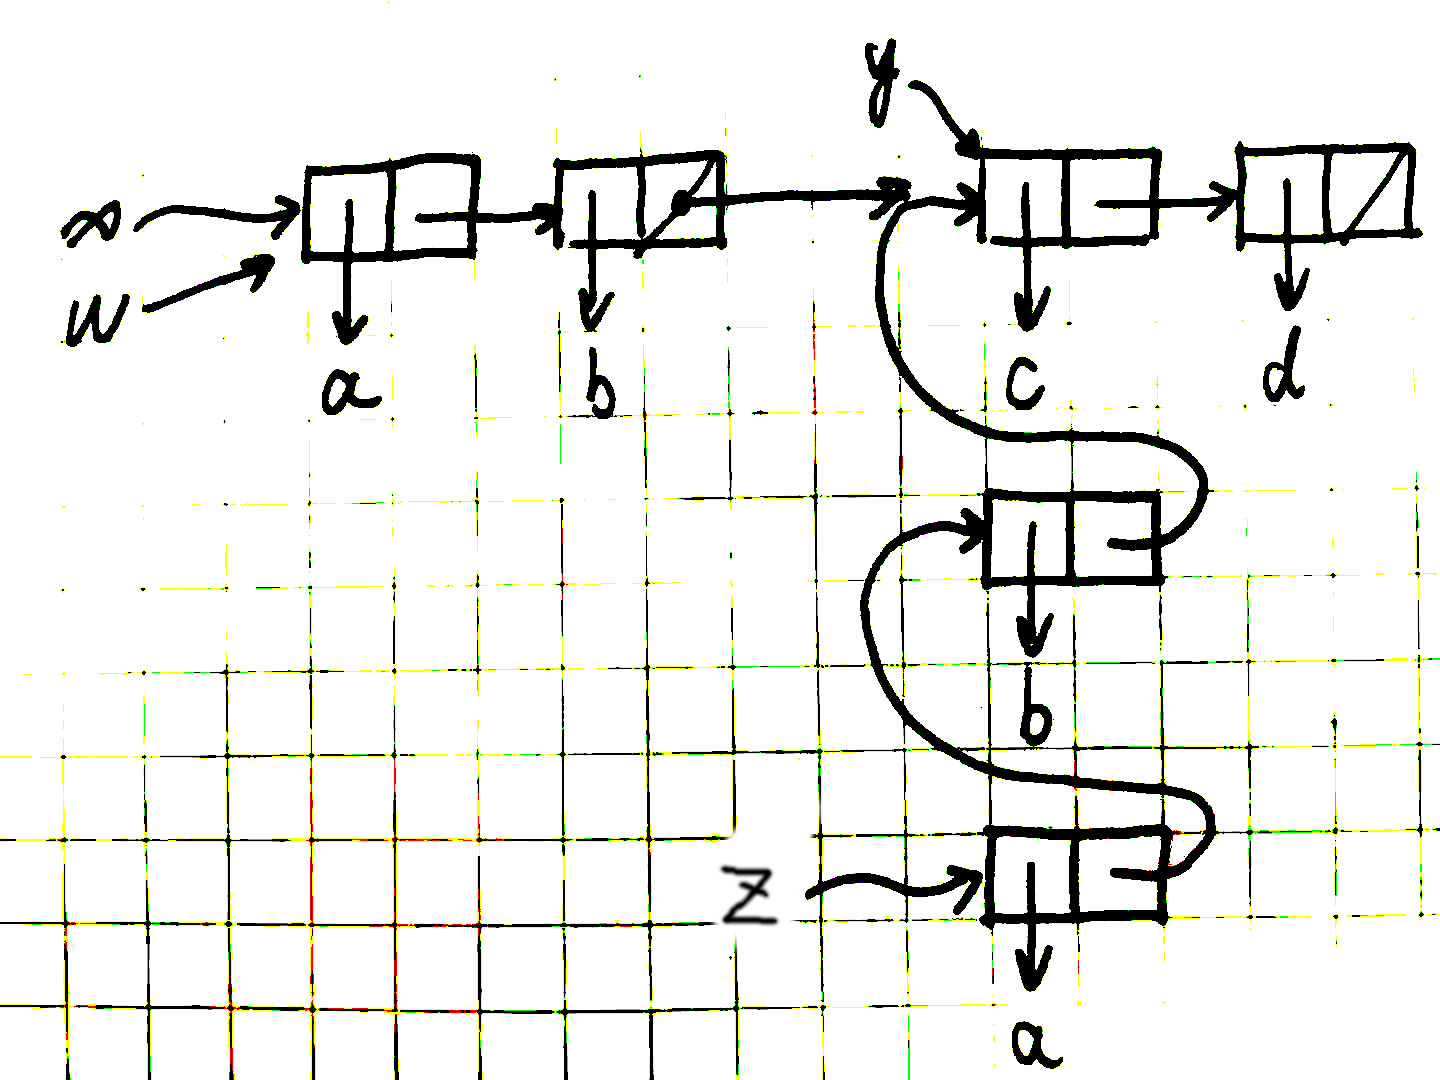 y
x
w
a b c d
b
z
a